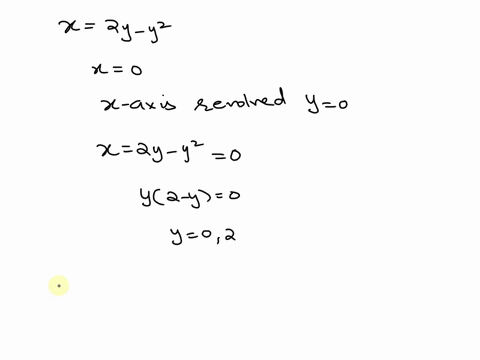 x = 2y - y²
x = 0
x-axis revolved y = 0
x = 2y - y² = 0
y(2-y) = 0
y = 0, 2